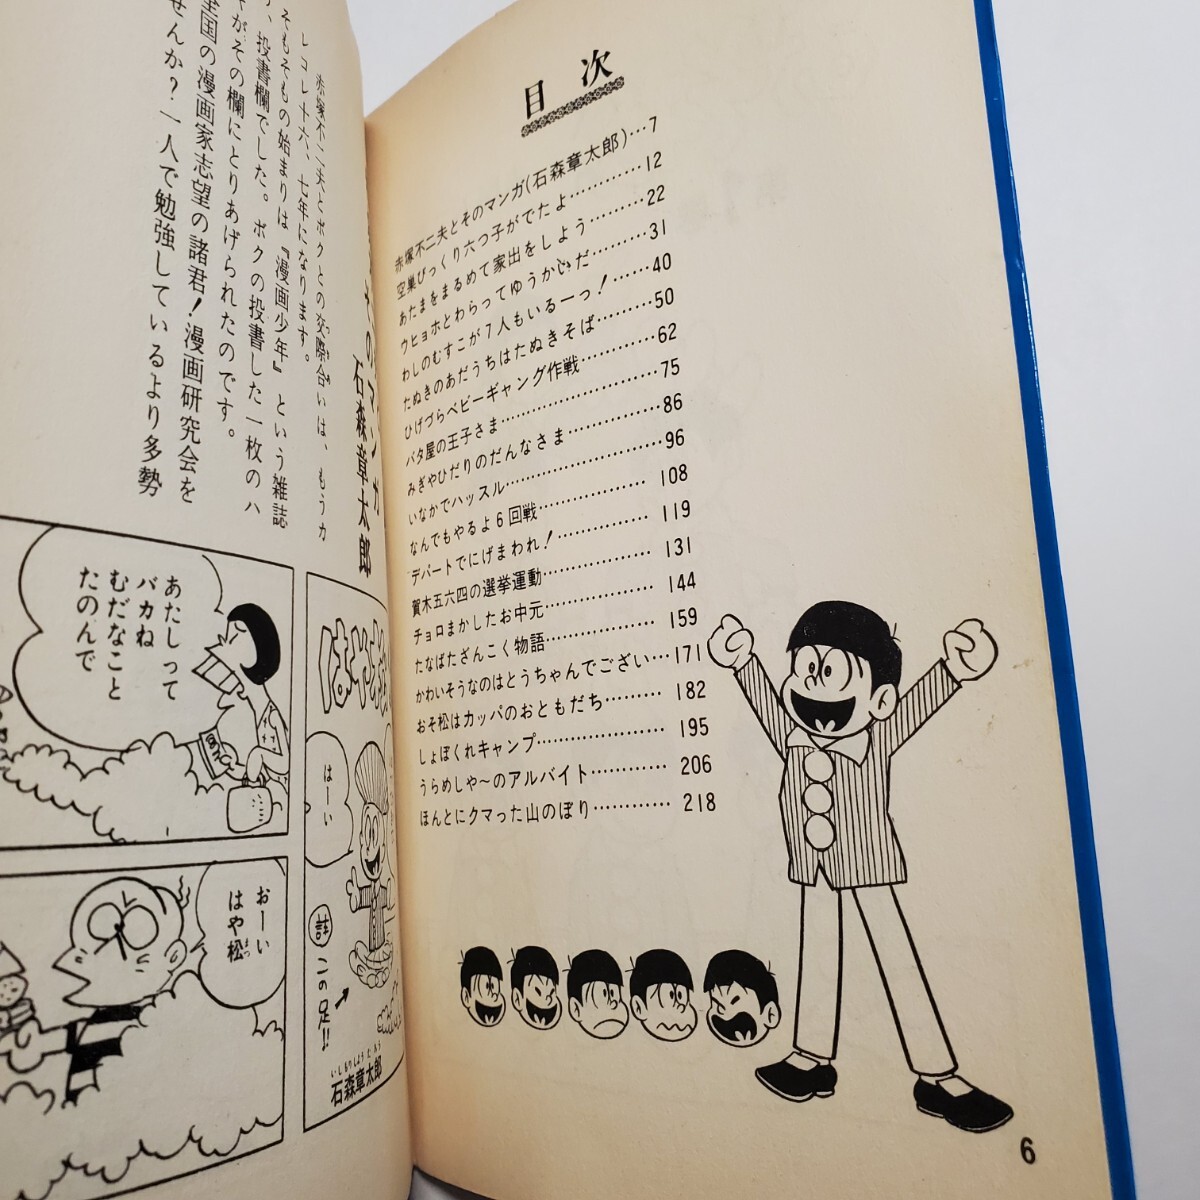 目次
赤塚不二夫とそのマンガ(石森章太郎)…7
空巣びっくり六つ子がでたよ…………12
あたまをまるめて家出をしよう………22
ウヒョホとわらってゆうかいだ………31
わしのむすこが7人もいるーっ!………40
たぬきのあだうちはたぬきそば………50
ひげづらベビーギャング作戦…………62
バタ屋の王子さま…………75
みぎやひだりのだんなさま…………86
いなかでハッスル…………96
なんでもやるよ6回戦…………108
デパートでにげまわれ!…………119
賀木五六四の選挙運動…………131
チョロまかしたお中元…………144
たなばたざんこく物語…………159
かわいそうなのはとうちゃんでござい…171
おそ松はカッパのおともだち…………182
しょぼくれキャンプ…………195
うらめしや〜のアルバイト…………206
ほんとにクマった山のぼり…………218
6
石森章太郎
赤塚不二夫とボクとの交際合いは、もうカ
レコレ十六、七年になります。
そもそもの始まりは『漫画少年』という雑誌
、投書欄でした。ボクの投書した一枚のハ
がその欄にとりあげられたのです。
全国の漫画家志望の諸君!漫画研究会を
せんか?一人で勉強しているより多勢
はーい
註
この足!!
いしもりしようたろう
石森章太郎
あたしって
バカね
むだなこと
たのんで
おーい
はや松